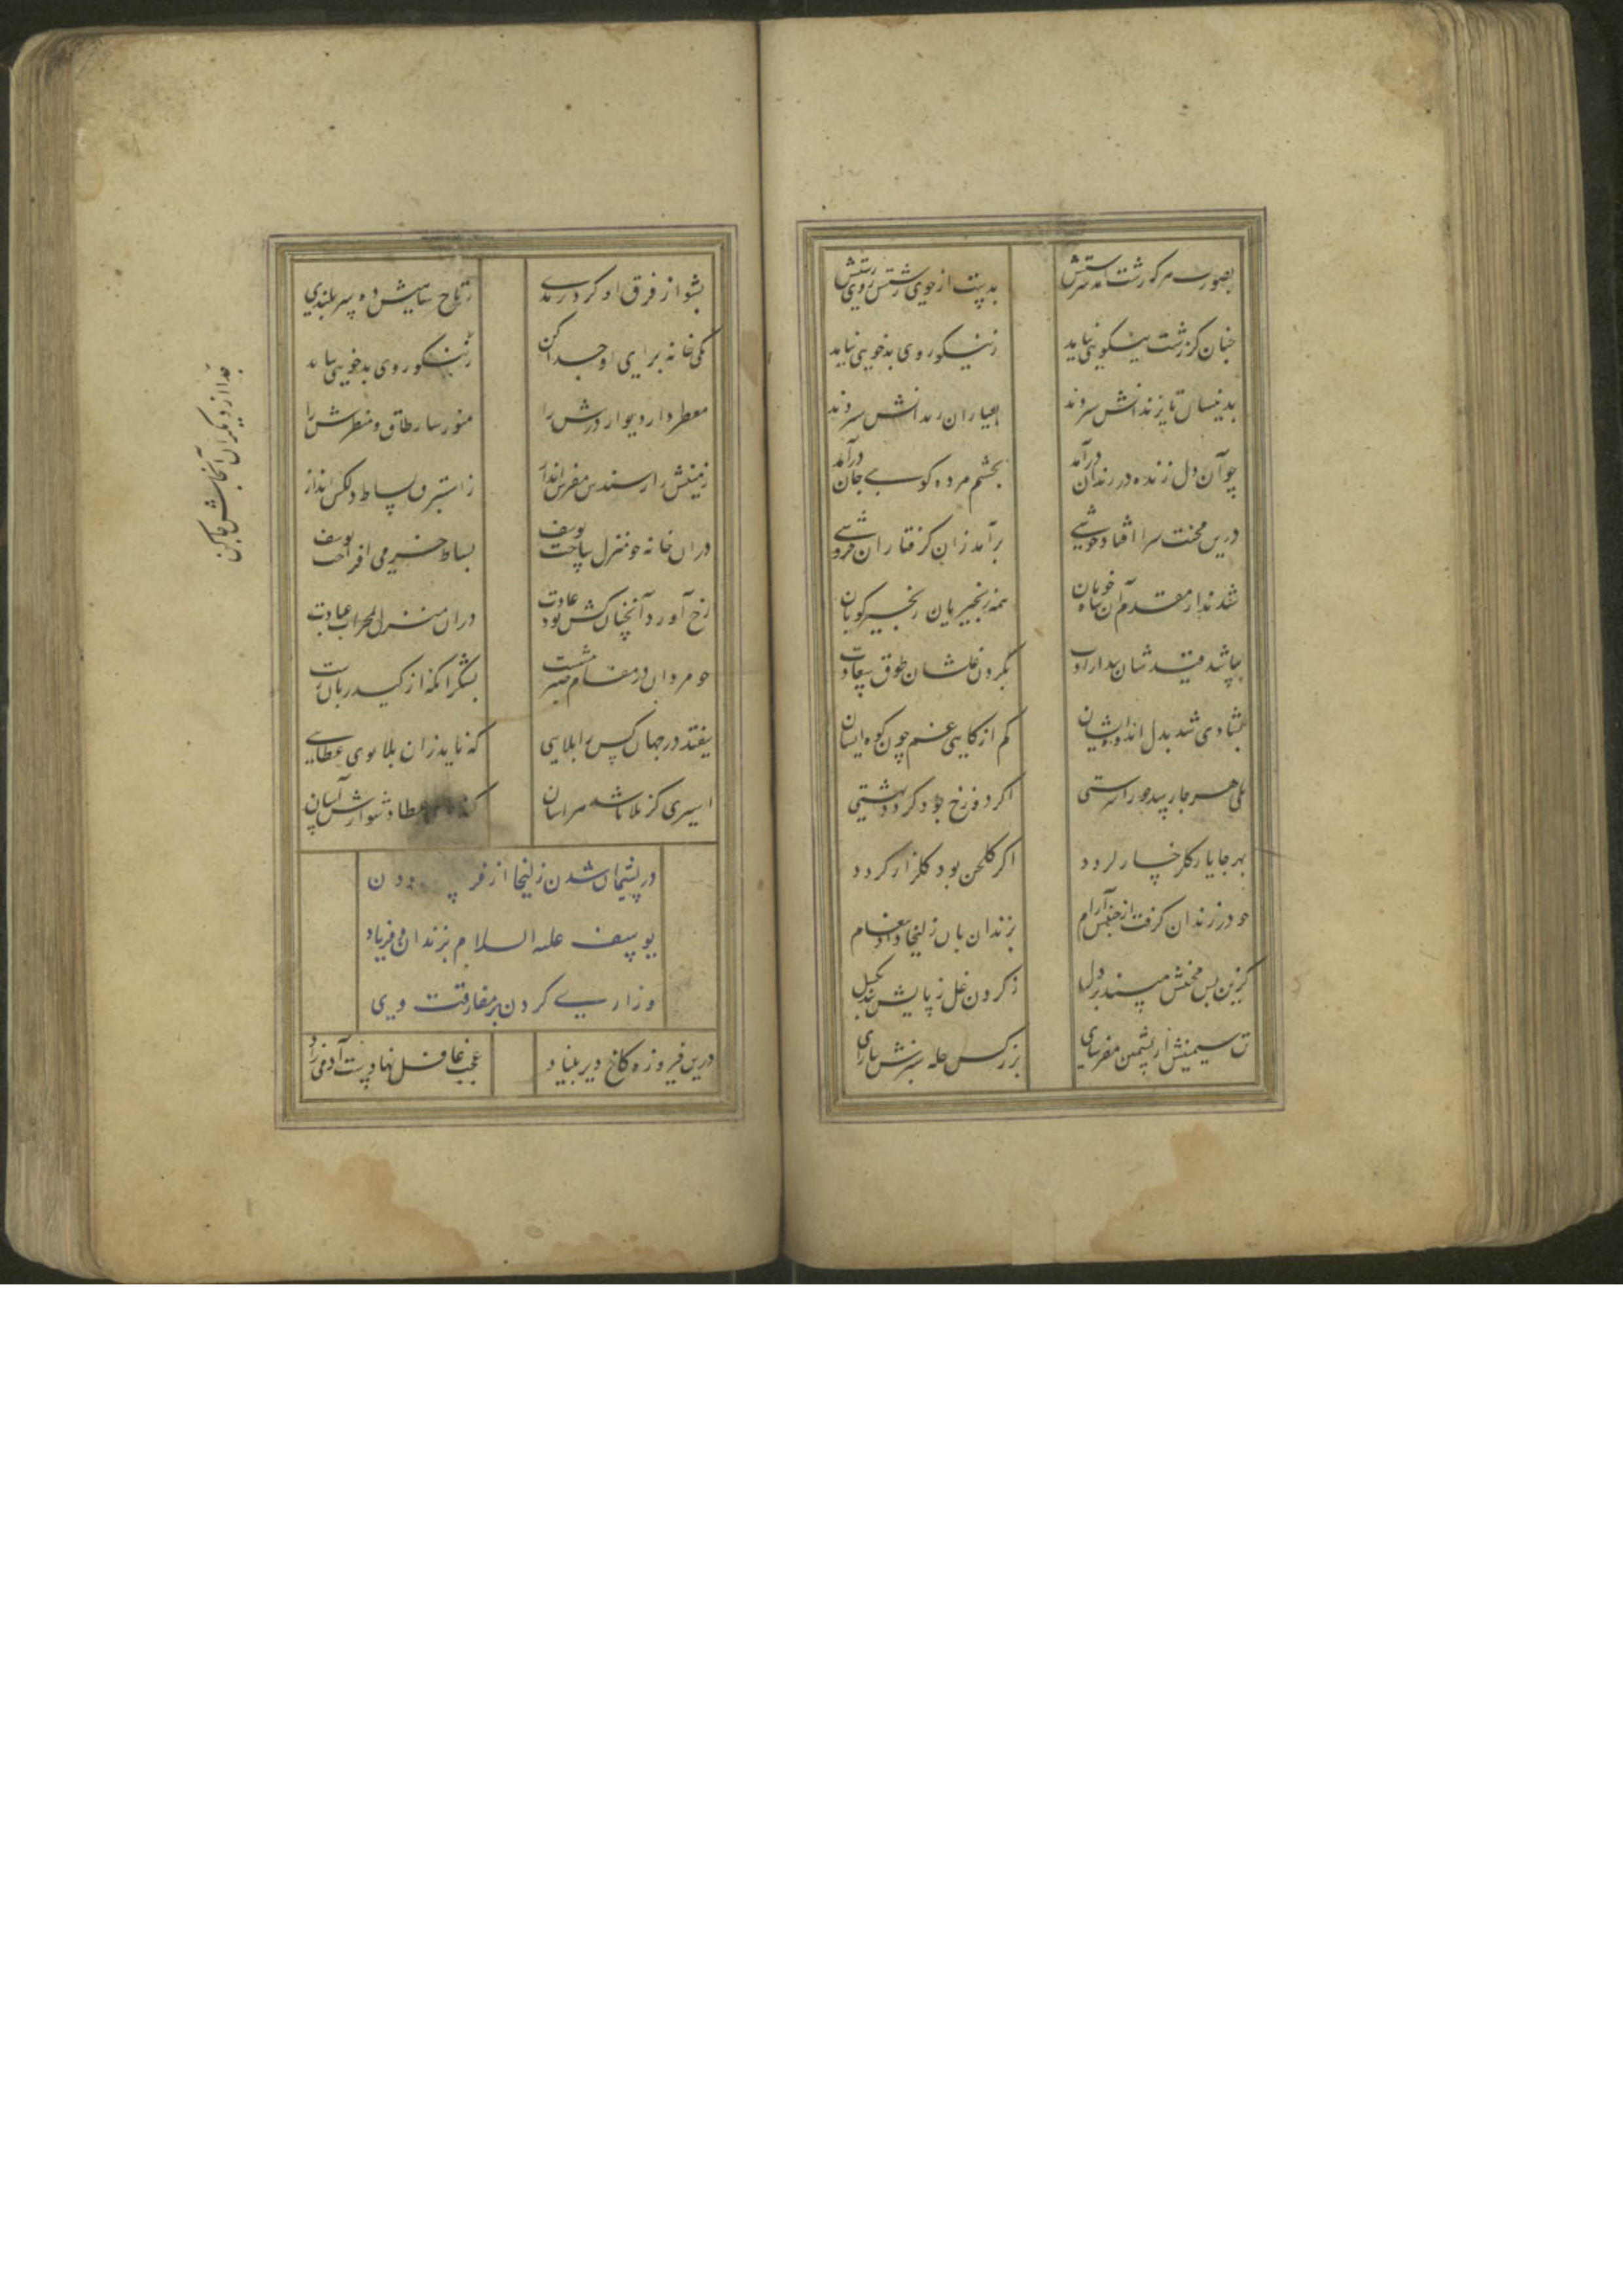 بصورت هر که زشت آمد سرشتش
بد پنست از خوی زشتش روی زشتش
چنان کز زشت نیکویی نیاید
ز نیکو روی بدخویی نیاید
بدینسان تا بزندانش سپردند
بعیاران زندانش سپردند
چو آن دل زنده در زندان درآمد
بجشم مرده کویی جان درآمد
درین محنت سرا افتاد جوشی
برآمد زان کرفتاران خروشی
شدند از مقدم آن شاه خوبان
همه زنجیریان زنجیر کوبان
بپا شد قید شان بند ارادت
بکردن غلشان طوق سعادت
بشادی شد بدل اندوه ایشان
کم از کاهی غم چون کوه ایشان
بلی هر جا رسد حورا سرشتی
اکر دوزخ بود کردد بهشتی
بهر جا یار کلرخسار کردد
اکر کلخن بود کلزار کردد
چو در زندان کرفت از جنبش آرام
بزندان بان زلیخا داد پیغام
کزین پس محنتش مپسند بر دل
ز کردن غل ز پایش بند بکسل
تن سیمینش از پشمین مفرسای
بزرکش حله سروش بیارای
بشو از فرق او کرد نژندی
ز تاج شاهیش ده سربلندی
یکی خانه برای او جدا کن
ز نیکو روی بدخویی نیاید
جدا از دیکران آنجاش جا کن
معطر دار دیوار و درش را
منور ساز طاق و منظرش را
زمینش را ز سندس مفرش انداز
ز استبرق بساط دلکش انداز
در آن خانه چو منزل ساخت یوسف
بساط خرمی افراخت یوسف
رخ آورد آنچنان کش بود عادت
در آن منزل بمحراب عبادت
چو مردان در مقام صبر بنشست
بشکر آنکه از کید زنان رست
نیفتد در جهان کس را بلایی
که ناید زان بلا بوی عطایی
اسیری کز بلا باشد هراسان
کند عطا دشوارش آسان
در پشیمان شدن زلیخا از فرستادن
یوسف علیه السلام بزندان و فریاد
و زاری کردن بر مفارقت وی
درین فیروزه کاخ دیر بنیاد
عجب غافل نهادست آدمی زاد